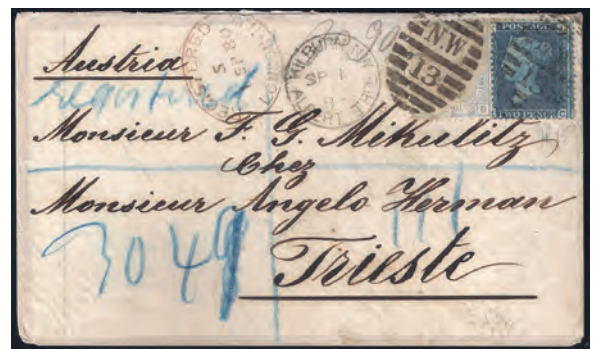 Austria
registered
REGISTERED LONDON
5 SP 80
KILBURN N.W.
SP
ALBERT
N.W
13
POSTAGE
TWO PENCE
G
Monsieur F. G. Mikulitz
Chez
Monsieur Angelo Herman
3049
Trieste